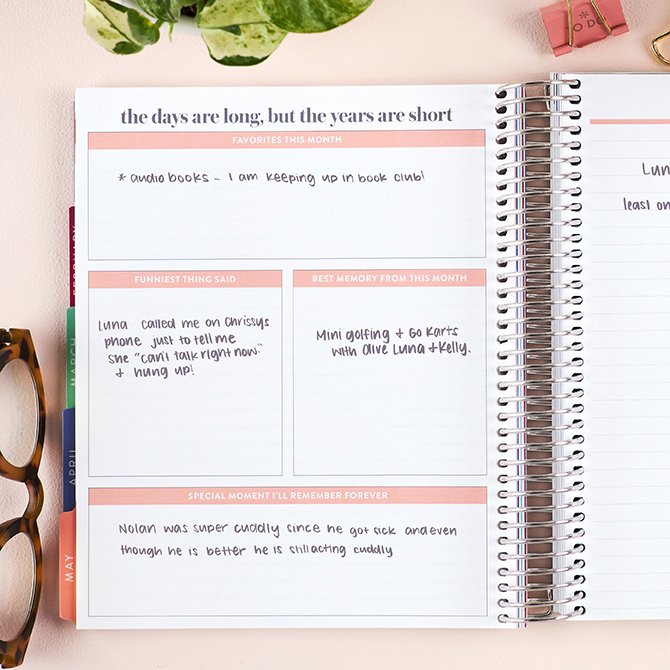 TO DO
the days are long, but the years are short
FAVORITES THIS MONTH
* audio books – I am keeping up in book club!
FUNNIEST THING SAID
Luna called me on Chrissys
phone just to tell me
she "can't talk right now."
+ hung up!
BEST MEMORY FROM THIS MONTH
Mini golfing + Go Karts
with Olive Luna + Kelly.
SPECIAL MOMENT I'LL REMEMBER FOREVER
Nolan was super cuddly since he got sick and even
though he is better he is still acting cuddly
FEBRUARY
MARCH
APRIL
MAY
least on